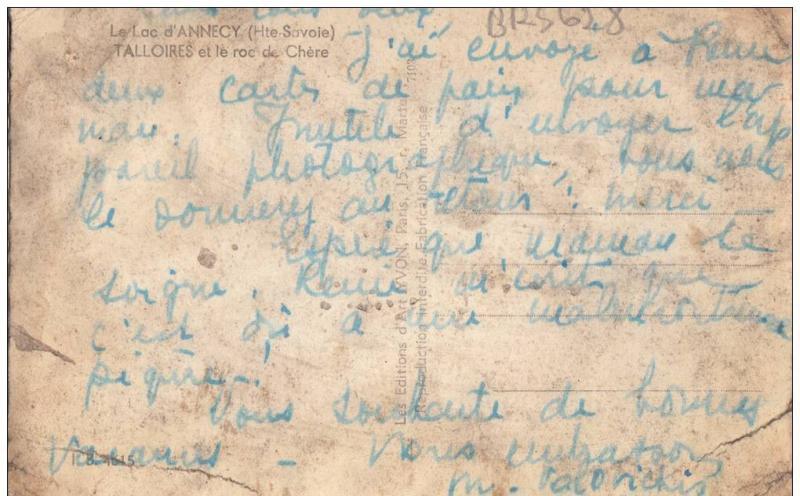 tous deux
BRS628
Le Lac d'ANNECY (Hte-Savoie)
TALLOIRES et le roc de Chère
J'ai envoyé à
deux cartes de pain pour ma
man. Inutile d'envoyer l'ap
pareil photographique, vous
le donnerez au retour. merci
que maman se
soigne. m'écrit que
c'est dû à une
piqûre -!
Vous souhaite de bonnes
Vacances -
M.
Les Editions d'Art YVON, Paris, 15, r. Martel
Reproduction Interdite. Fabrication Française